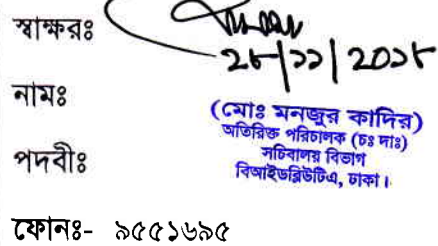 স্বাক্ষরঃ
২৮/১১/২০১৮
নামঃ
(মোঃ মনজুর কাদির)
অতিরিক্ত পরিচালক (চঃ দাঃ)
পদবীঃ
সচিবালয় বিভাগ
বিআইডব্লিউটিএ, ঢাকা।
ফোনঃ- ৯৫৫১৬৯৫